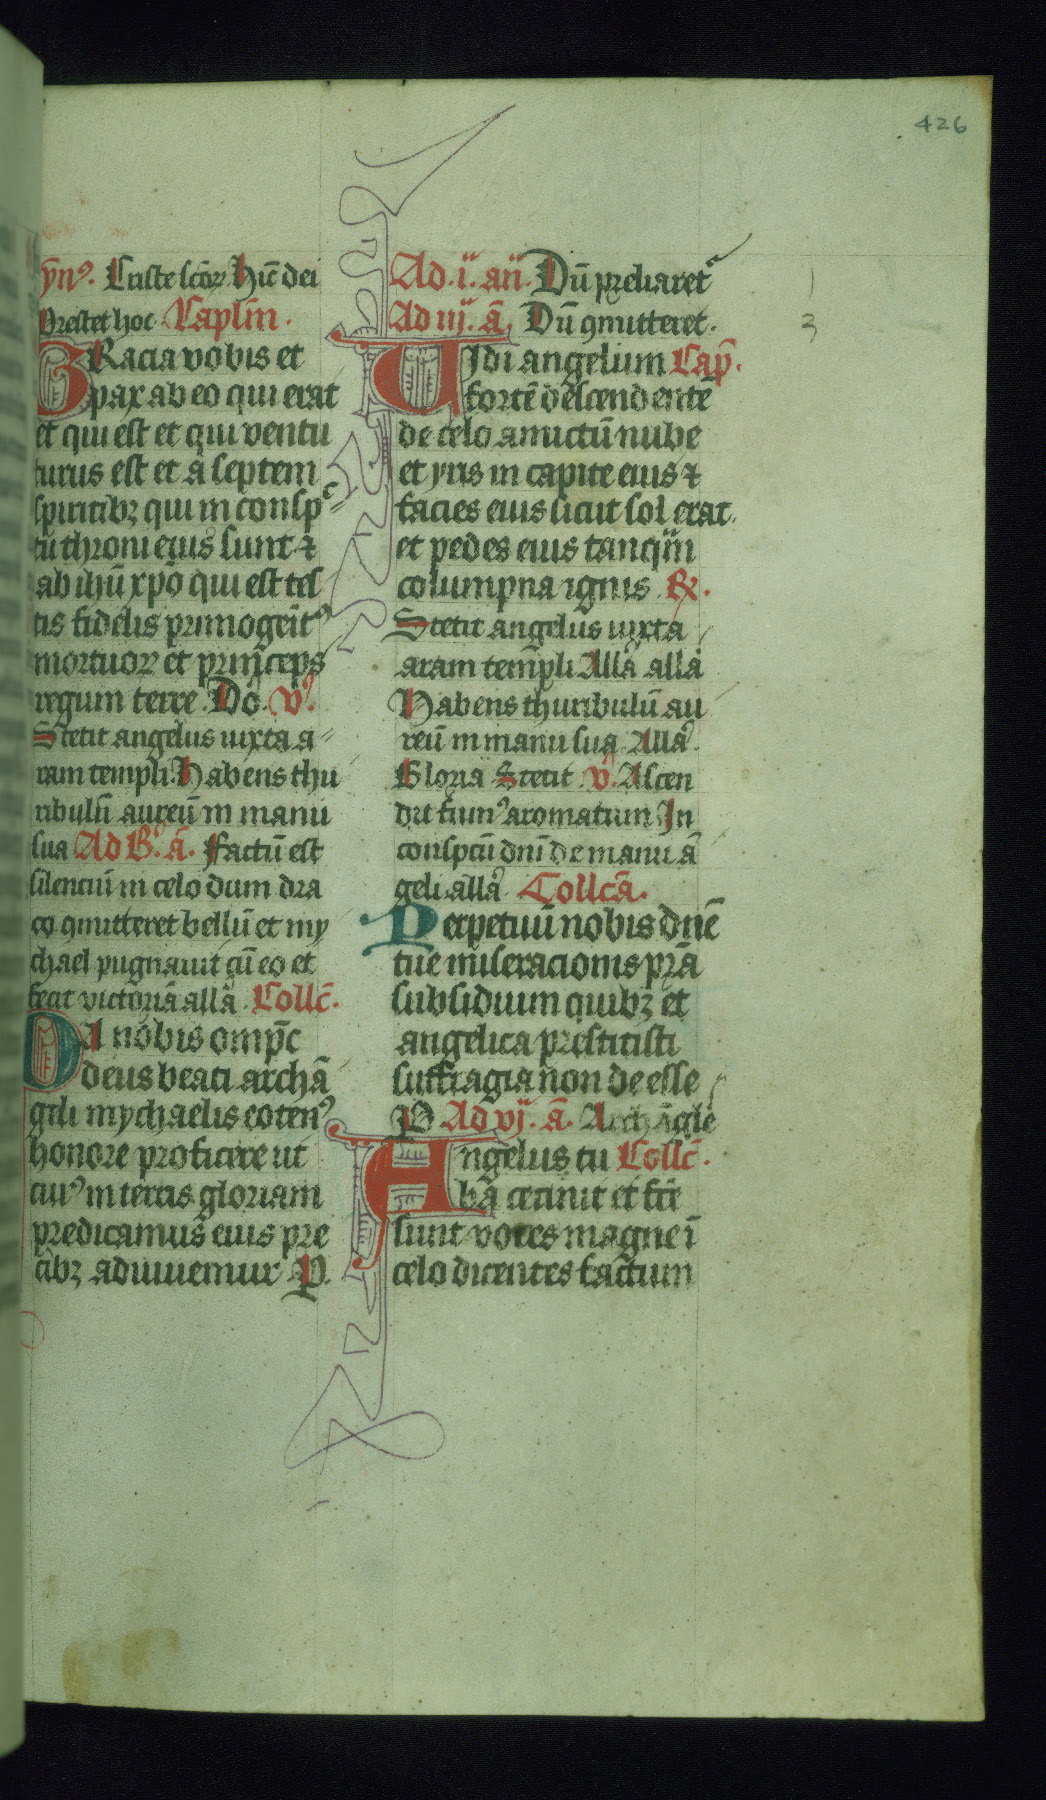 426
ẏmꝰ. Criste scōꝝ hic̄ dei
Prestet hoc Caplm̄.
GRacia vobis et
pax ab eo qui erat
et qui est et qui ventu
turus est et a septem
spiritibꝫ qui in consp̄c
tu throni eius sunt ⁊
ab ihū xp̄o qui est tes
tis fidelis primogeītꝰ
mortuoꝝ et princeps
regum terre Dō. v̓.
Stetit angelus iuxta a
ram templi. Habens thu
ribulū aureū in manu
sua Ad B̓. a̅. Factū est
silenciū in celo dum dra
co ꝯmitteret bellū et my
chael pugnauit cū eo et
fecit victoriā allā. Collc̄.
DA nobis omp̄c
deus beati archā
geli mychaelis eotenꝰ
honore proficere ut
cuiꝰ in terris gloriam
predicamus eius pre
cibꝫ adiuuemur P.
Ad .i. an̄. Dū preliaret᷑
Ad iij. a̅. Dū ꝯmitteret.
1
3
UIdi angelum Cap̄.
fortē descendentē
de celo amictū nube
et yris in capite eius ⁊
facies eius sicut sol erat.
et pedes eius tanqm̄
columpna ignis ℞.
Stetit angelus iuxta
aram templi Allā allā
Habens thuribulū au
reū in manu sua. Allā.
Gloria Stetit v̓. Ascen
dit fumꝰ aromatum In
conspcū dnī de manu ā
geli allā Collcā.
Perpetuū nobis dn̄e
tue miseracionis prā
subsidium quibꝫ et
angelica prestitisti
suffragia non de esse
P Ad vj. a̅. Archāgle
Angelus tu Collc̄.
bā cecinit et fc̄e
sunt voces magne ī
celo dicentes factum